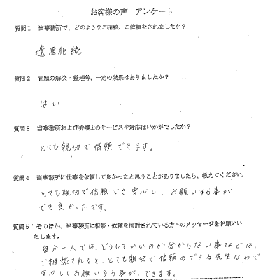 お客様の声 アンケート
質問1 当事務所で、どのようなご相談、ご依頼をされましたか？
遺産相続
質問2 問題の解決・整理等、一定の効果はありましたか？
はい
質問3 当事務所および弁護士のサービスや対応はいかがでしたか？
とても親切で信頼できます。
質問4 当事務所に仕事を依頼して良かったと思うことがありましたら、教えてください。
とても親切で信頼でき安心し、お願いする事が
でき良かったです。
質問5 そのほか、当事務所に相談・依頼を検討されている方へのメッセージをお願いい
たします。
自分一人では、どうしていいのか分からない事などは、
ご相談されると、とても親切で信頼のできる先生なので
安心しお願いする事ができます。